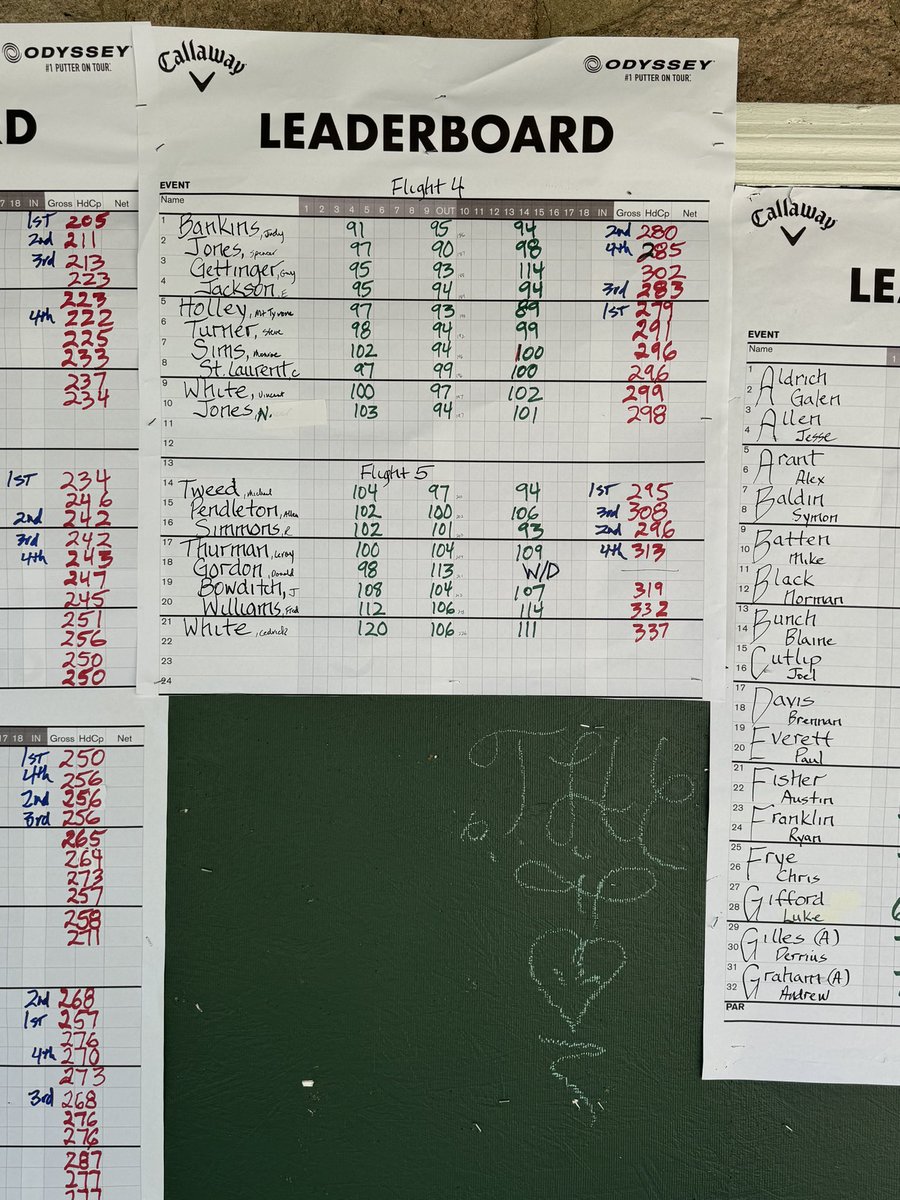 ODYSSEY
#1 PUTTER ON TOUR
RD
17 18 IN Gross HdCp Net
1st 205
2nd 211
3rd 213
223
223
4th 222
225
233
237
234
1st 234
246
2nd 242
3rd 242
4th 243
247
245
251
256
250
250
17 18 IN Gross HdCp Net
1st 250
4th 256
2nd 256
3rd 256
265
264
273
257
258
271
2nd 268
1st 257
276
4th 270
273
3rd 268
276
276
287
277
277
Callaway
ODYSSEY
#1 PUTTER ON TOUR
LEADERBOARD
EVENT Flight 4
Name 1 2 3 4 5 6 7 8 9 OUT 10 11 12 13 14 15 16 17 18 IN Gross HdCp Net
1 Bankins, Jody 91 95 94 2nd 280
2 Jones, Spencer 97 90 98 4th 285
3 Gettinger, Guy 95 93 114 302
4 Jackson, E 95 94 94 3rd 283
5 Holley, Mt Tyrone 97 93 89 1st 279
6 Turner, Steve 98 94 99 291
7 Sims, Monroe 102 94 100 296
8 St. Laurent C 97 99 100 296
9 White, Vincent 100 97 102 299
10 Jones, N. 103 94 101 298
11
12
13 Flight 5
14 Tweed, Michael 104 97 94 1st 295
15 Pendleton, Allen 102 100 106 3rd 308
16 Simmons, R. 102 101 93 2nd 296
17 Thurman, Leroy 100 104 109 4th 313
18 Gordon, Donald 98 113 W/D
19 Bowditch, J 108 104 107 319
20 Williams, Fred 112 106 114 332
21 White, Cedrick 120 106 111 337
22
23
24
Callaway
LE
EVENT
Name 1
1 Aldrich
2 Galen
3 Allen
4 Jesse
5 Arant
6 Alex
7 Baldin
8 Symon
9 Batten
10 Mike
11 Black
12 Norman
13 Bunch
14 Blaine
15 Cutlip
16 Joel
17 Davis
18 Brennan
19 Everett
20 Paul
21 Fisher
22 Austin
23 Franklin
24 Ryan
25 Frye
26 Chris
27 Gifford
28 Luke
29 Gilles (A)
30 Derrius
31 Graham (A)
32 Andrew
PAR